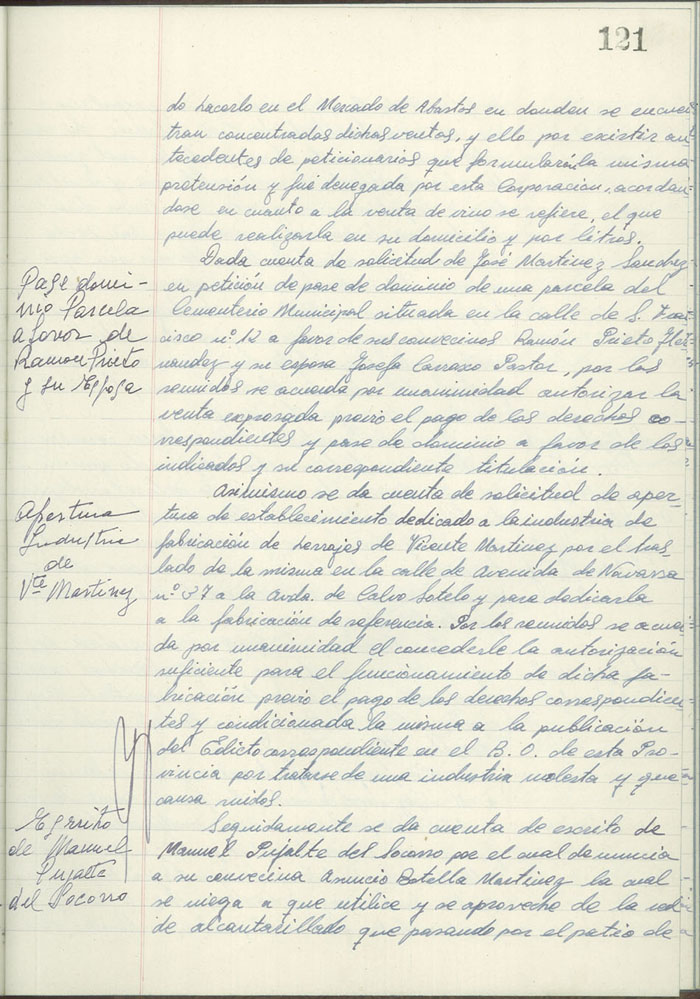 121
do hacerlo en el Mercado de Abastos en donden se encuen
tran concentradas dichas ventas, y ello por existir an
tecedentes de peticionarios que formularán la misma
pretensión y fué denegada por esta Corporación, acordan-
dose en cuanto a la venta de vino se refiere, el que
puede realizarla en su domicilio y por litros.
Pase domi-
nio Parcela
a favor de
Ramon Prieto
y su Esposa
Dada cuenta de solicitud de José Martinez Sanchez
en petición de pase de dominio de una parcela del
Cementerio Municipal situada en la calle de S. Fran
cisco nº. 12 a favor de sus convecinos Ramón Prieto Her
nandez y su esposa Josefa Carrasco Pastor, por los
reunidos se acuerda por unanimidad autorizar la
venta expresada previo el pago de los derechos co-
rrespondientes y pase de dominio a favor de los
indicados y su correspondiente titulación.
Apertura
Industria
de
Vte Martinez
Asimismo se da cuenta de solicitud de aper-
tura de establecimiento dedicado a la industria de
fabricación de herrajes de Vicente Martinez por el tras
lado de la misma en la calle de Avenida de Navarra
nº. 37 a la Avda. de Calvo Sotelo y para dedicarla
a la fabricación de referencia. Por los reunidos se acuer
da por unanimidad el concederle la autorización
suficiente para el funcionamiento de dicha fa-
bricación previo el pago de los derechos correspondien-
tes y condicionada la misma a la publicación
del Edicto correspondiente en el B. O. de esta Pro-
vincia por tratarse de una industria molesta y que
causa ruidos.
Escrito
de Manuel
Pujalte
del Socorro
Seguidamente se da cuenta de escrito de
Manuel Pujalte del Socorro por el cual denuncia
a su convecina Asuncio Estella Martinez la cual
se niega a que utilice y se aproveche de la red
de alcantarillado que pasando por el patio de